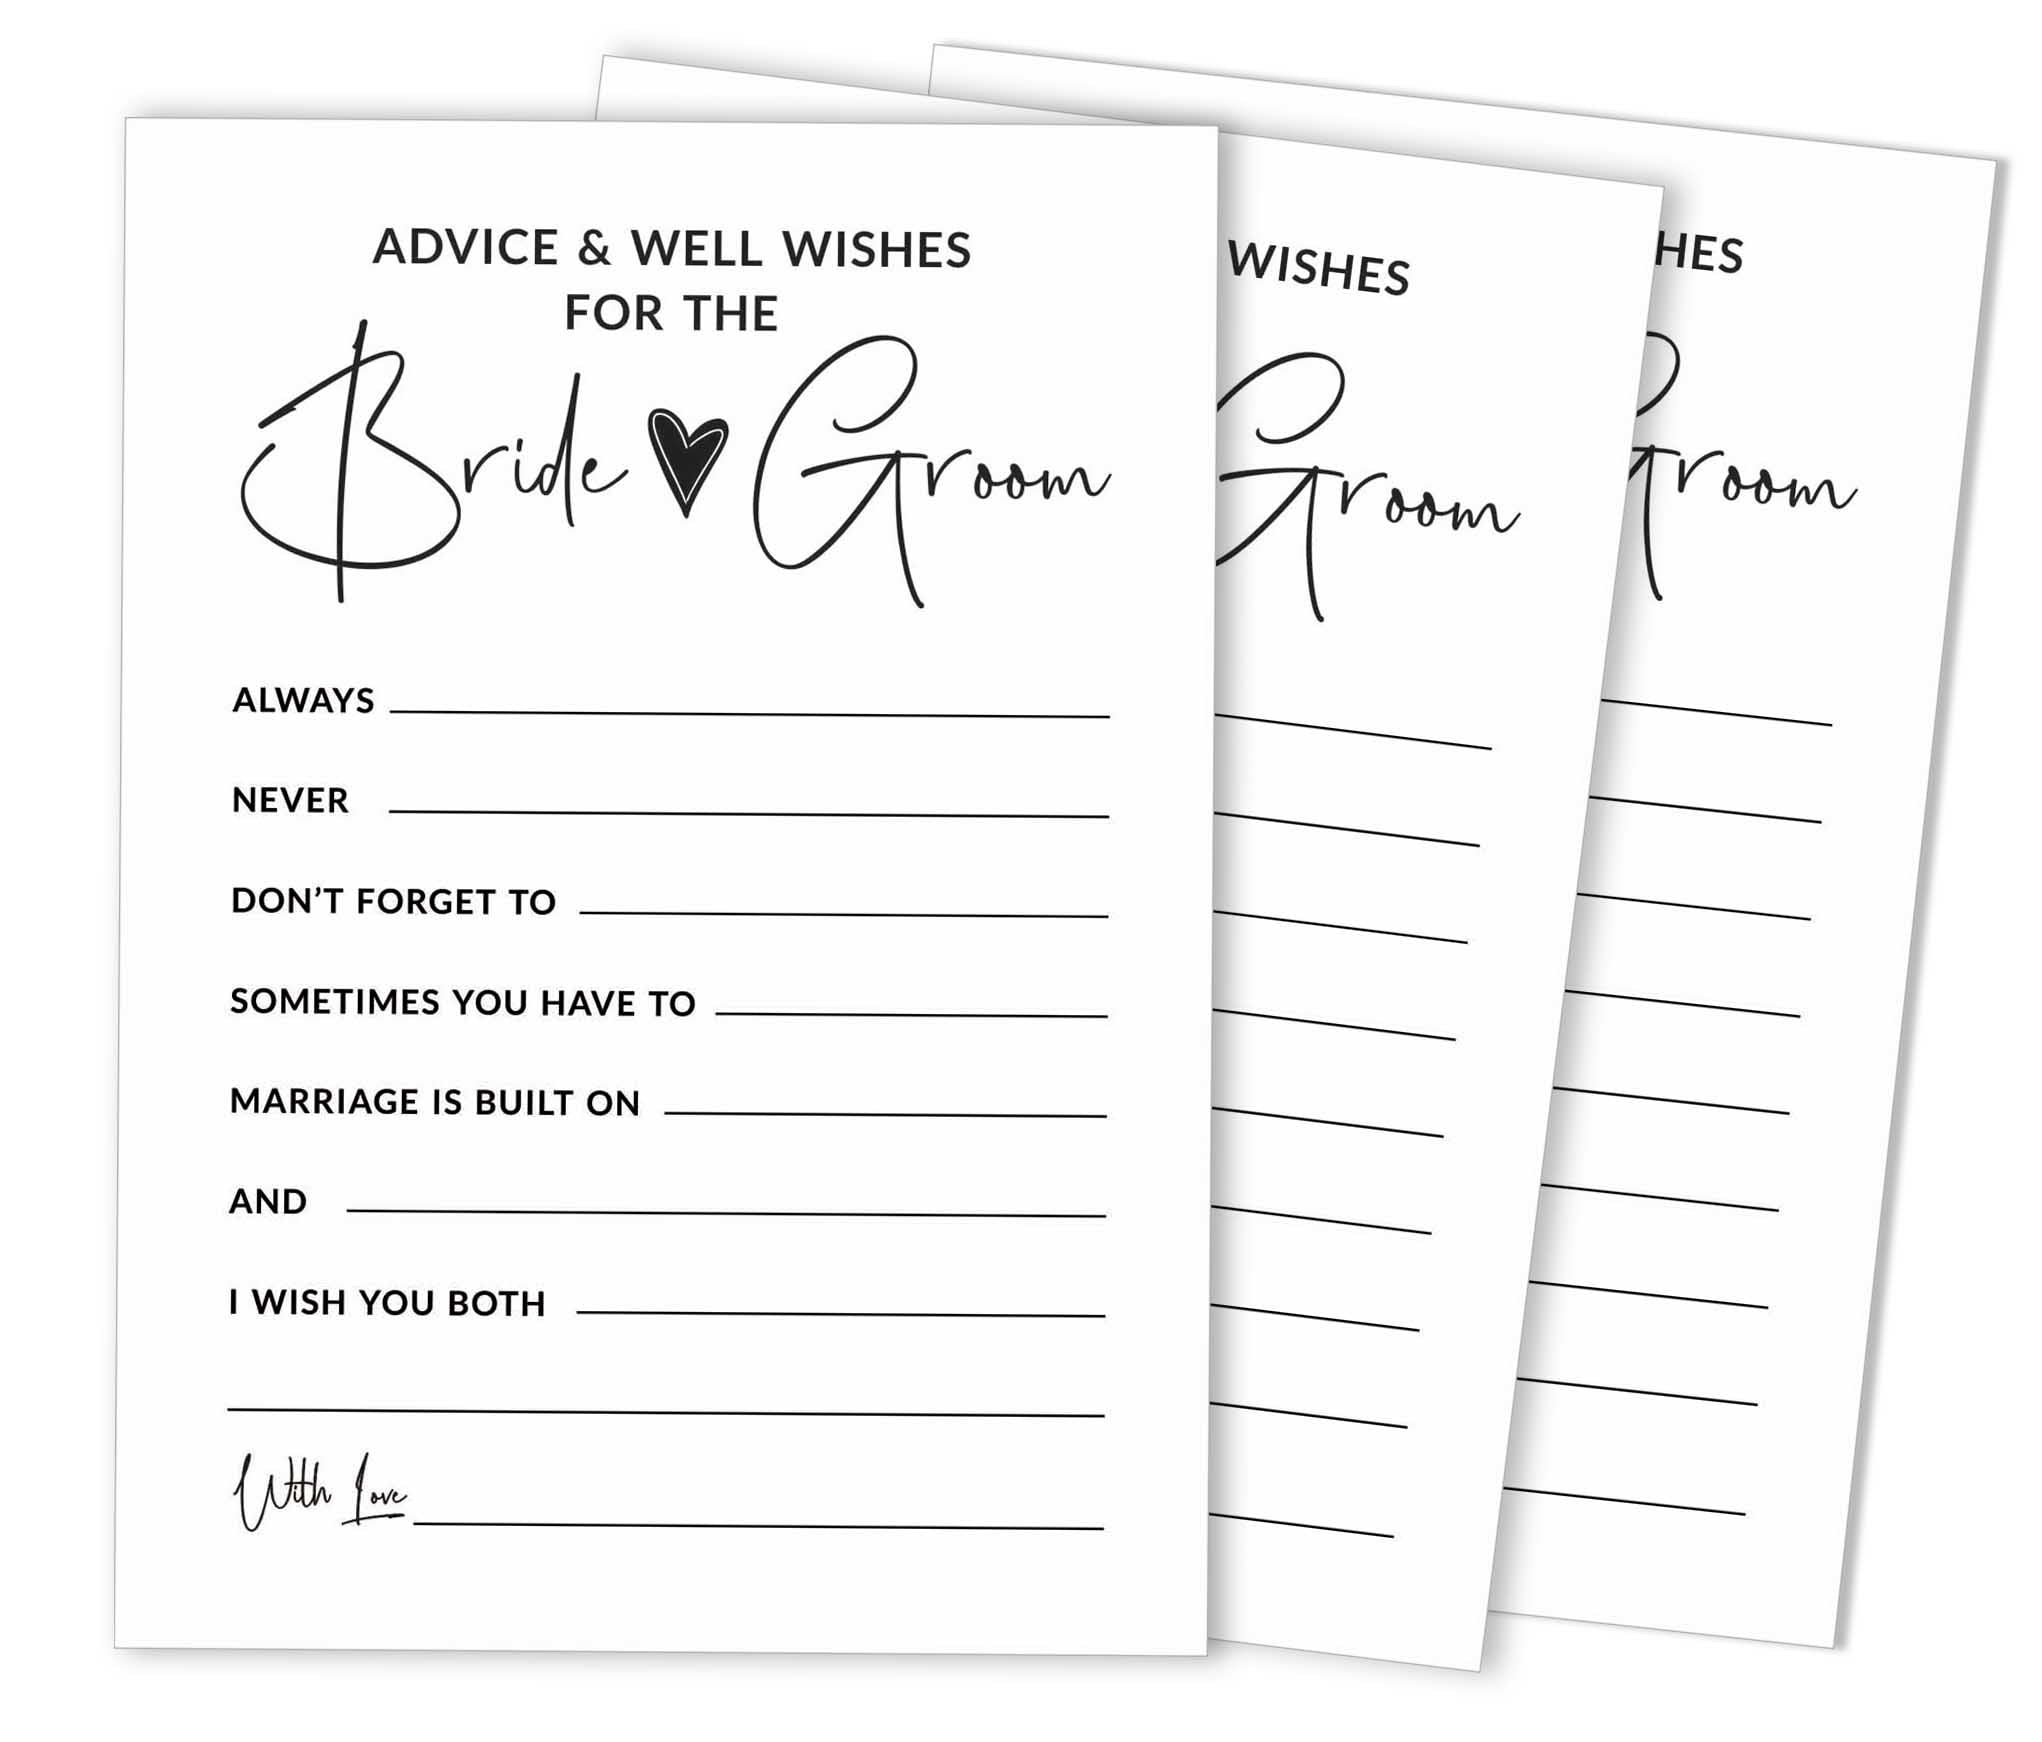 ADVICE & WELL WISHES
FOR THE
Bride Groom
ALWAYS
NEVER
DON’T FORGET TO
SOMETIMES YOU HAVE TO
MARRIAGE IS BUILT ON
AND
I WISH YOU BOTH
With Love
WISHES
Groom
HES
Groom